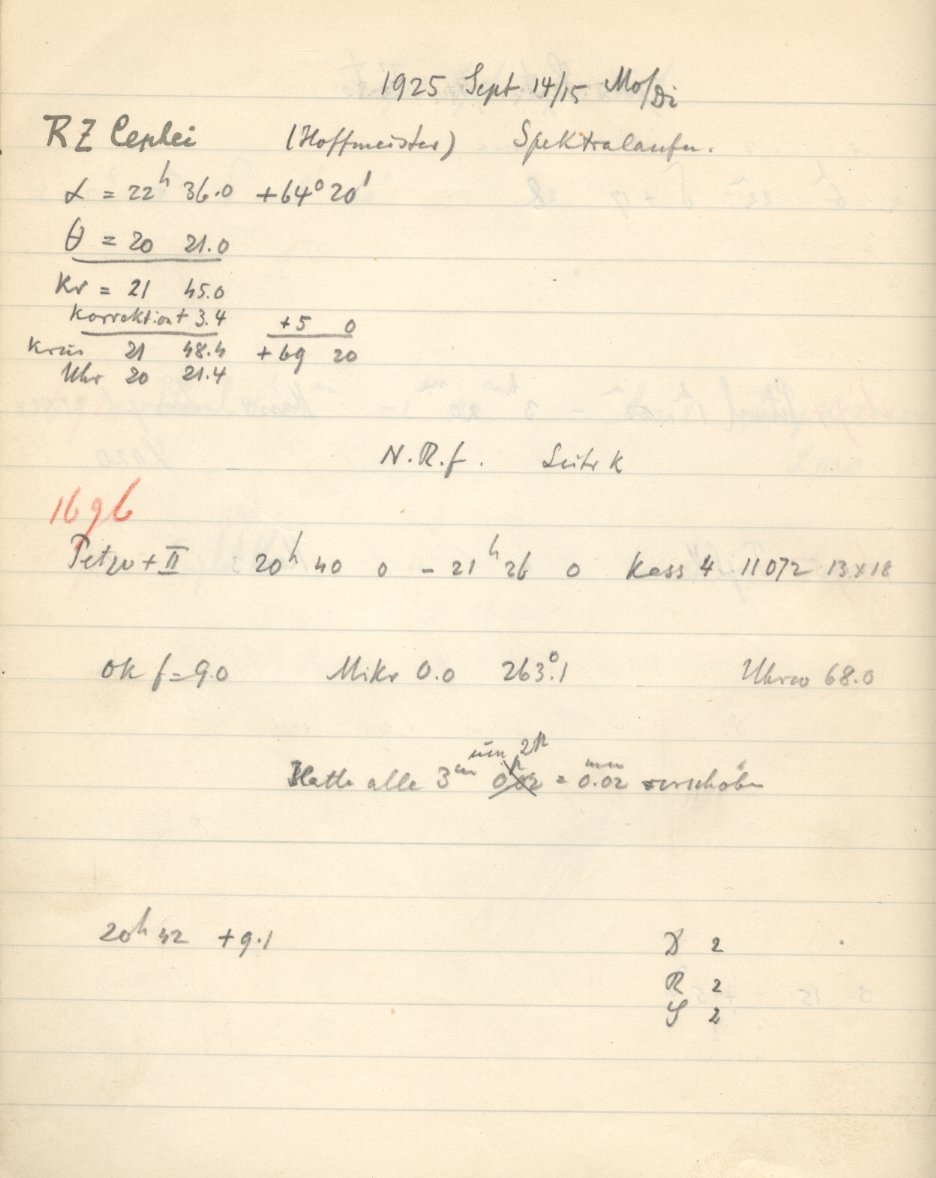 1925 Sept 14/15 Mo/Di
RZ Cephei (Hoffmeister) Spektralaufn.
α = 22h 36.0 +64° 20'
θ = 20 21.0
Kr = 21 45.0
Korrektion + 3.4 +5 0
Kreis 21 48.4 +69 20
Uhr 20 21.4
N.R.f.
1696
II 20h 40 0 - 21h 26 0 Kass 4 11072 13x18
Ok f = 9.0 Mikr 0.0 263°.1 68.0
Platte alle 3m um 2p = 0.02 mm verschoben
20h 42 +9.1
D 2
R 2
S 2